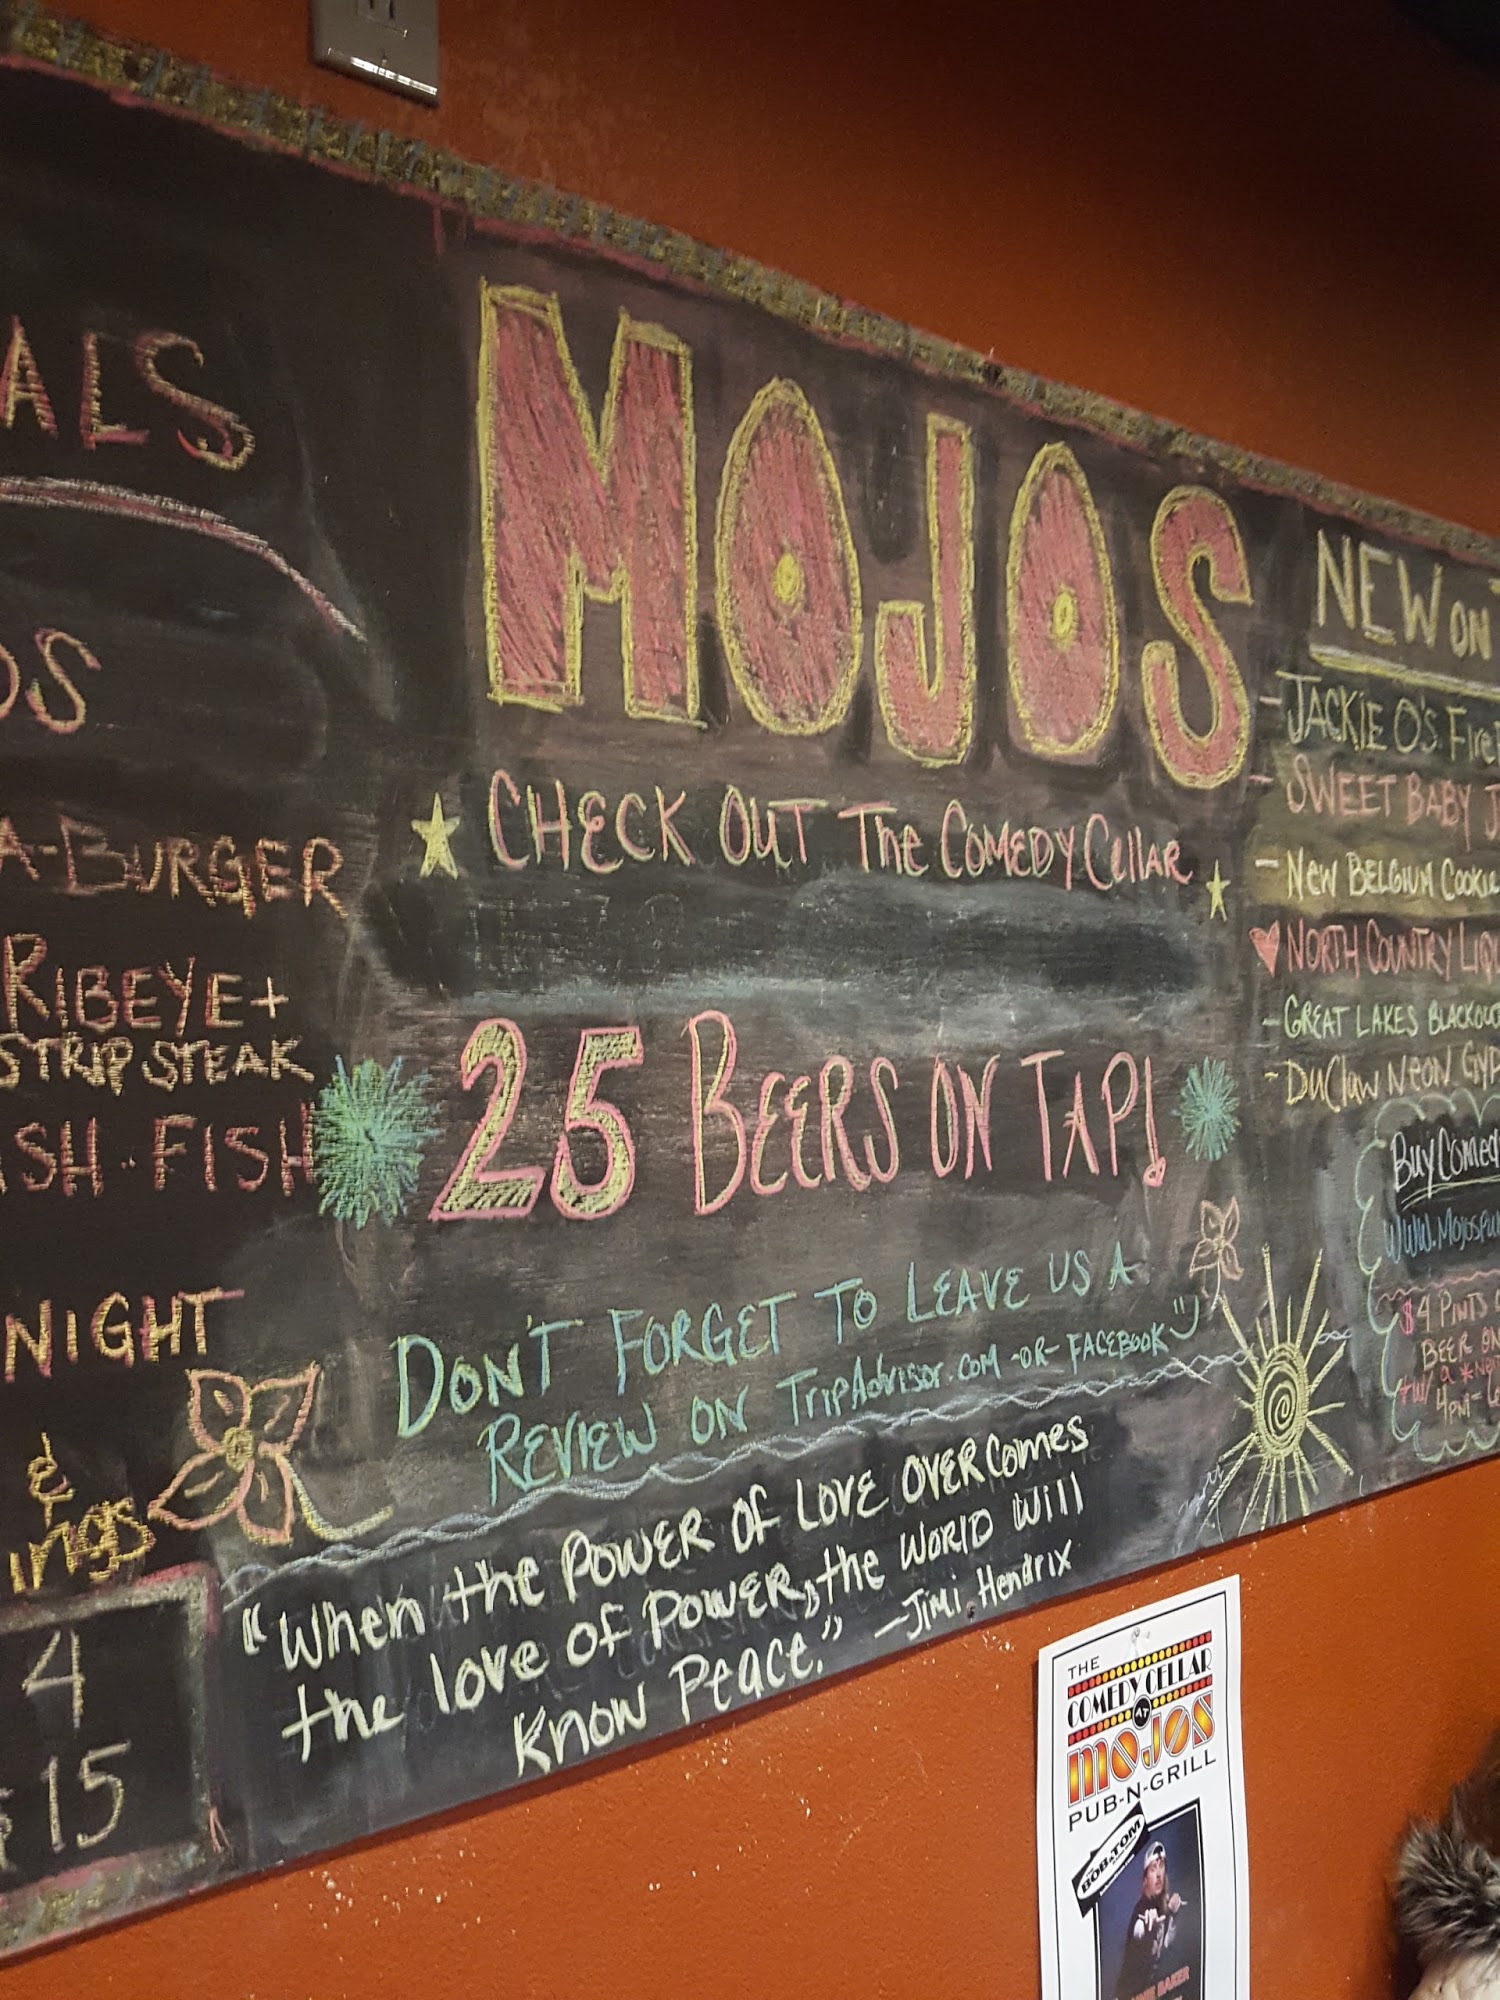 ALS
OS
A-BURGER
RIBEYE +
STRIP STEAK
ISH · FISH
NIGHT
&
ings
4
$15
MOJOS
CHECK OUT The COMEDY CEllAR
25 BEERS ON TAP!
DON'T FORGET TO LEAVE US A
REVIEW ON TripAdvisor.com -OR- FACEBOOK
"When the POWER OF LOVE OVERCOMES
the love of POWER, the WORLD Will
KNOW Peace." -Jimi Hendrix
NEW ON
- JACKIE O'S Fire
- SWEET BABY J
- NEW BELGIUM COOKIE
NORTH COUNTRY LIQU
- GREAT LAKES BLACKOUT
- DuClaw NEON GYP
BUY COMED
WWW.MOJOSPU
$4 PINTS
BEER ON
4PM-6
THE
COMEDY CELLAR
AT
MOJOS
PUB-N-GRILL
BOB & TOM
BAKER